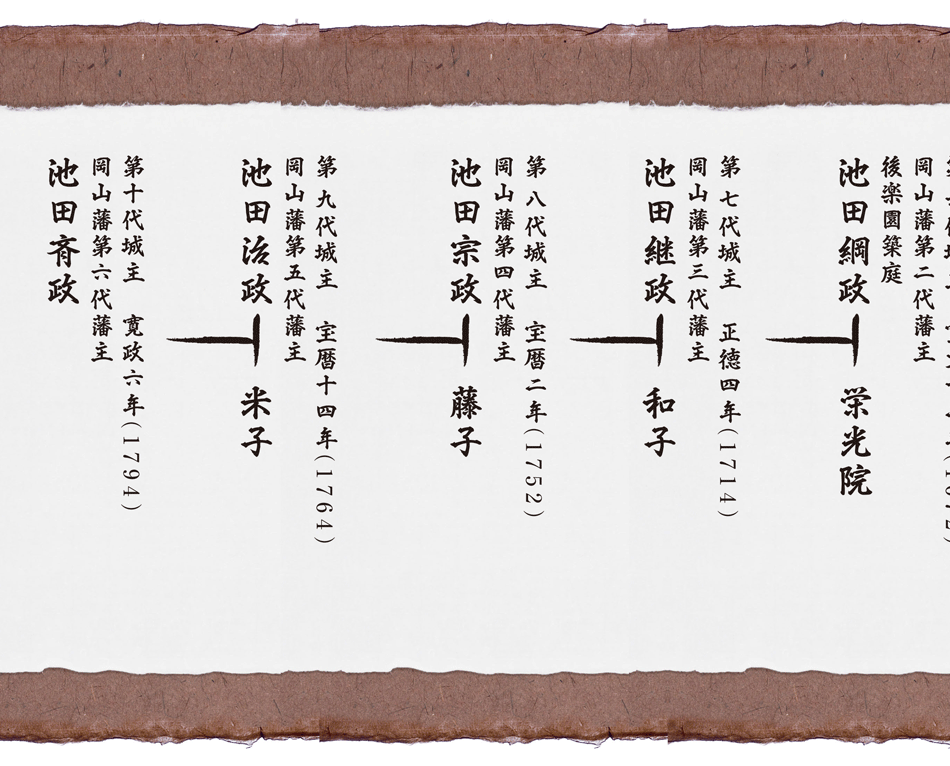 岡山藩第二代藩主
後楽園築庭
池田綱政
栄光院
第七代城主 正徳四年(1714)
岡山藩第三代藩主
池田継政
和子
第八代城主 宝暦二年(1752)
岡山藩第四代藩主
池田宗政
藤子
第九代城主 宝暦十四年(1764)
岡山藩第五代藩主
池田治政
米子
第十代城主 寛政六年(1794)
岡山藩第六代藩主
池田斉政